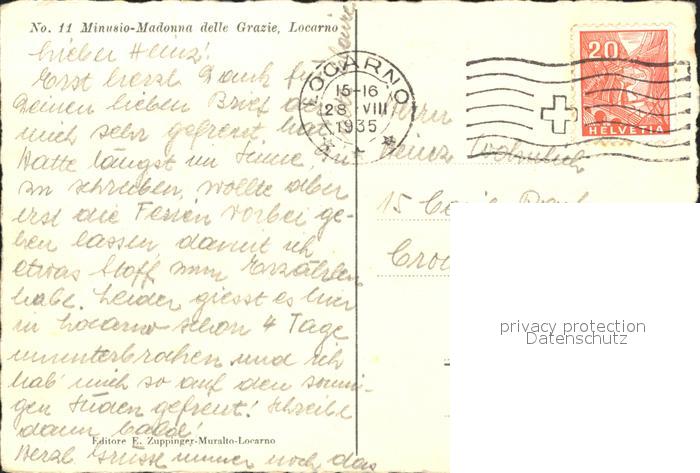 No. 11 Minusio-Madonna delle Grazie, Locarno
Lieber Heinz!
Erst herzl. Dank für
Deinen lieben Brief der
mich sehr gefreut hat.
Hatte längst im Sinne
zu schreiben, wollte aber
erst die Ferien vorbei ge-
hen lassen, damit ich
etwas Stoff zum Erzählen
habe. Leider giesst es hier
in Locarno schon 4 Tage
ununterbrochen und ich
hab' mich so auf den sonni-
gen Süden gefreut! Schreibe
dann bald!
Editore E. Zuppinger-Muralto-Locarno
Herzl. Grüsse immer noch das
LOCARNO
15-16
28 VIII
1935
20
HELVETIA
Herrn
Heinz
15
privacy protection
Datenschutz